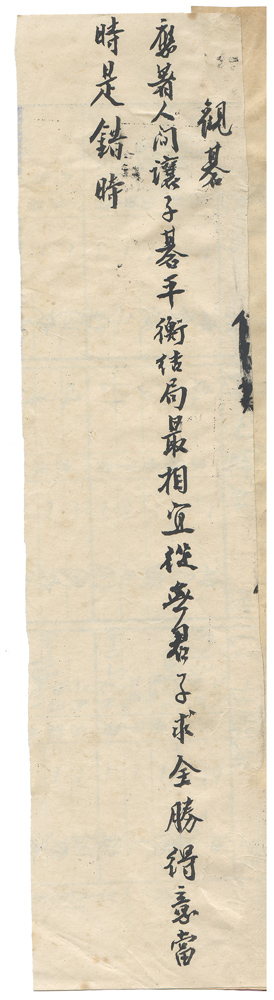 觀碁
應著人間讓子碁平衡結局最相宜從無君子求全勝得意當
時是錯時